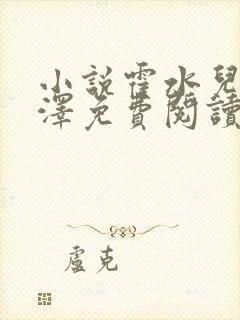 小說霍水兒
澤免費閱讀
盧克